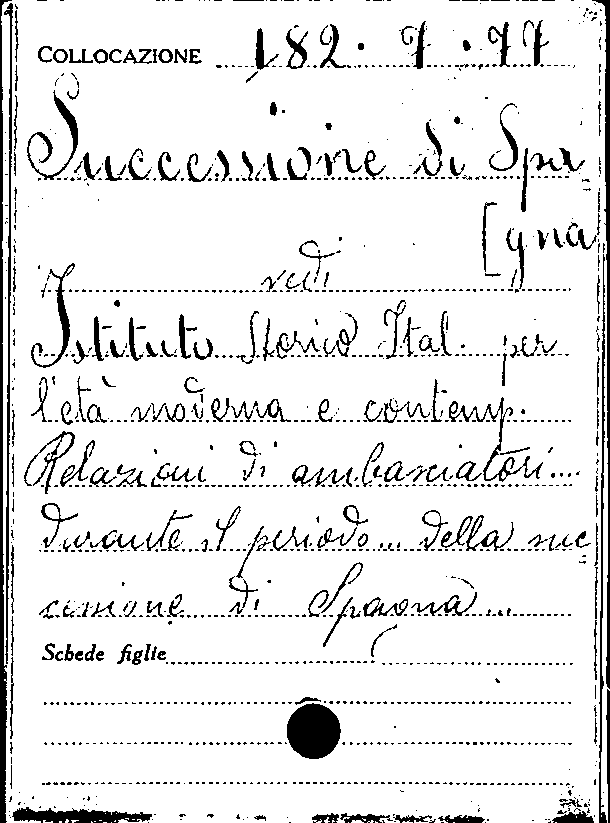 COLLOCAZIONE 182. 7. 77
Successione di Spa
[gna
vedi
Istituto Storico Ital. per
l'età moderna e contemp.
Relazioni di ambasciatori....
durante il periodo... della suc
cessione di Spagna...
Schede figlie